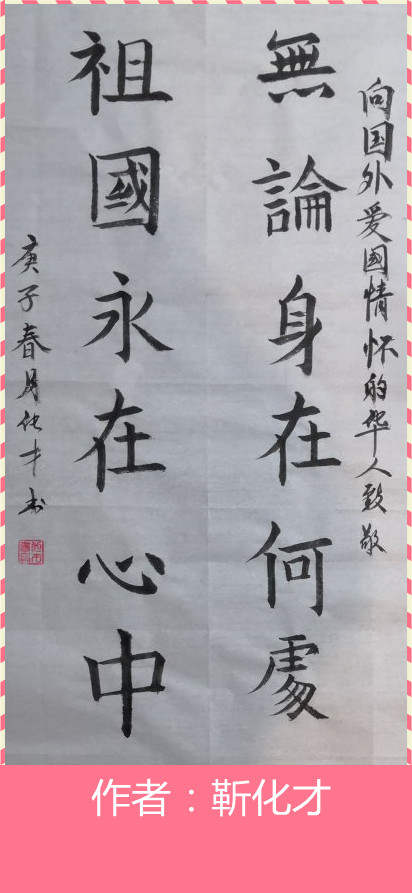 向国外爱國情怀的华人致敬
無論身在何處
祖國永在心中
庚子春月化才书
作者：靳化才